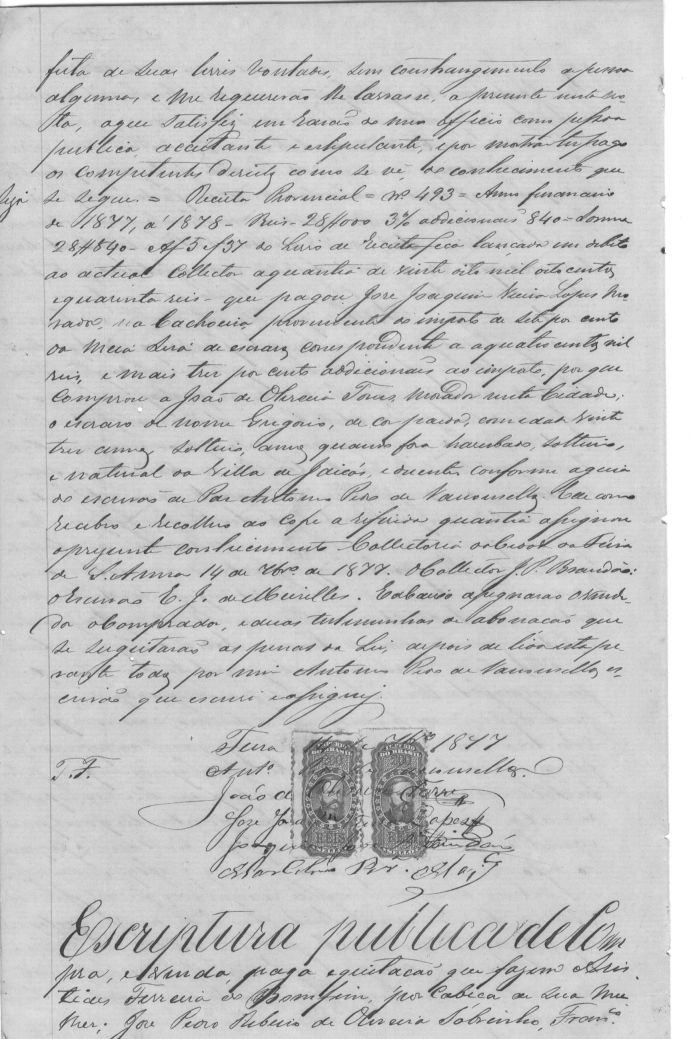 feita de suas livres vontades, sem constrangimento de pessoa
alguma, e me requererão lhe lavrasse, a presente nesta no-
ta, a que satisfiz em razão do meo officio como pessoa
publica, aceitante e estipulante, e por mostrar ter pago
os competentes direitos como se vê do conhecimento que
se segue. = Receita Provincial = Nº 493 = Anno financeiro
de 1877, á 1878 - Reis - 28#000 3% addicionais 840 = Somma
28#840 - Af 5 ef 37 do Livro de Receita fica lançada em debito
ao actual Collector a quantia de vinte oito mil oito centos
e quarenta reis - que pagou José Joaquim Vieira Lopes mo-
rador, na Cachoeira proveniente do imposto de sete por cento
da meia siza de escravos correspondente a quatro centos mil
reis, e mais tres por cento addicionais ao imposto, por que
comprou a João de Oliveira Torres, morador nesta Cidade,
o escravo de nome Gregorio, de cor parda, com edade vinte
tres annos, solteiro,
e natural da Villa de Jaicós, conforme a guia
do escrivão de Paz Antonio Pero de Vasconcellos. E de como
recebeo e recolheo ao Cofre a referida quantia assignou
o presente conhecimento. Collectoria da Cidade da Feira
de S. Anna 14 de 7bro. de 1877. O Collector J. P. Brandão:
O Escrivão C. J. de Meirelles. E abaixo assignarão o vende-
dor o comprador, e duas testemunhas de abonação que
se sugeitarão as penas da Lei, depois de lida esta pe-
rante todos por mim Antonio Pero de Vasconcellos, es-
crivão que escrevi e assignei.
Feira de 7bro 1877
T. F. Anto. Vasconcellos.
João de Oliveira Torres
José Joaquim Lopes
Joaquim
Marcelino
DO BRASIL
DO BRASIL
Escriptura publica de Com
pra, e venda, paga e quitação que fazem Aris-
tides Ferreira do Bomfim, por Cabeça de sua mu-
lher; José Pedro Ribeiro de Oliveira Sobrinho, Franco.